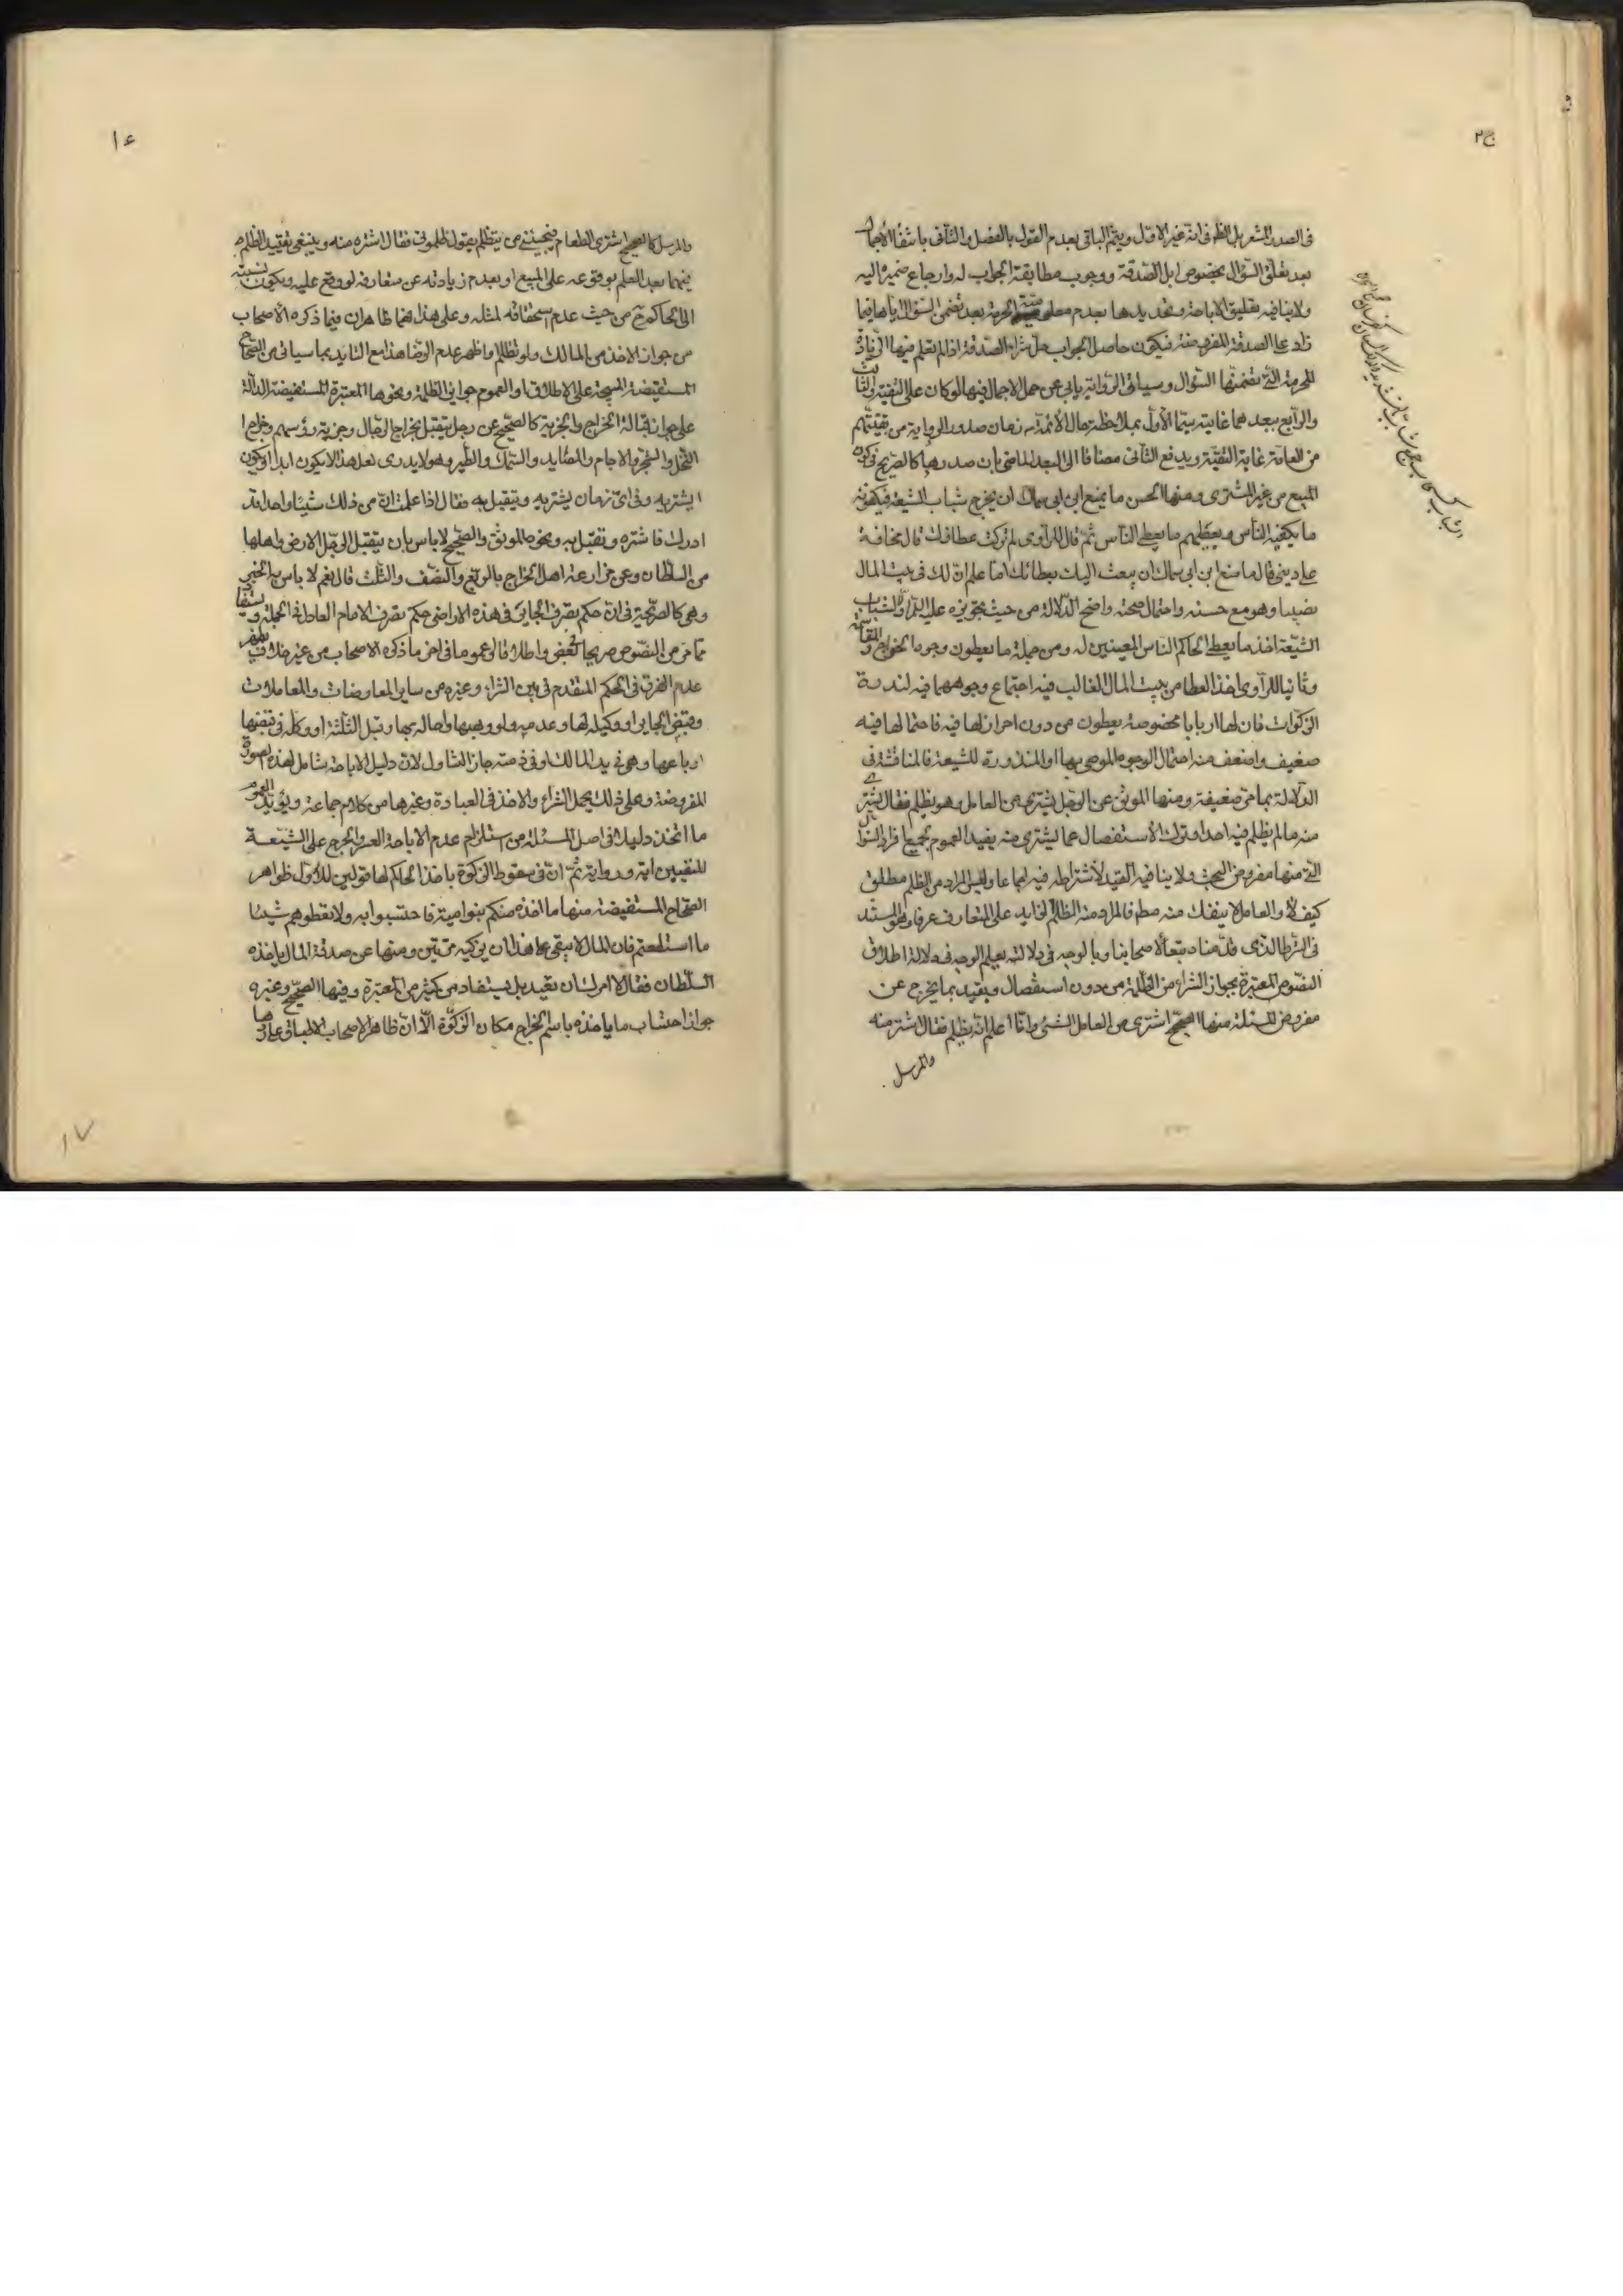 ج٢
في الصدر المشعر بل الظ في انه غير الاول ويتم الباقي بعدم القول بالفصل والثاني بانتفاء الاجمال
بعد تعلق السؤال بخصوص ابل الصدقة ووجوب مطابقة الجواب له وارجاع ضميره اليه
ولا ينافيه تعليق الاباحة وتحديدها بعدم معلومية الحرمة بعد تضمن السؤال اياها فيما
زاد على الصدقة المفروضة فيكون حاصل الجواب حل شراء الصدقة اذا لم يعلم فيها الزيادة
المحرمة التي تضمنتها السؤال وسياق الرواية يابى عن حمل الاجمال فيها لو كان على التقية والثالث
والرابع ببعدهما غايته سيما الأول بملاحظة حال الأئمة في زمان صدور الرواية من تقيتهم
من العامة غاية التقية ويدفع الثاني مضافا الى البعد الماضي بان صدرها كالصريح في كون
المبيع من غير المشتري ومنها الحسن ما يمنع ابن ابي سماك ان يخرج شباب الشيعة فيكفونه
ما يكفيه الناس ويعطيهم ما يعطي الناس ثم قال للراوي لم تركت عطاءك قال مخافة
على ديني قال ما منع ابن ابي سماك ان يبعث اليك بعطائك اما علم ان لك في بيت المال
نصيبا وهو مع حسنه واحتمال صحته واضح الدلالة من حيث تجويزه عليه السلام اولا لشباب
الشيعة اخذ ما يعطي الحاكم الناس المعينين له ومن جملة ما يعطون وجوه الخراج والمقاسمة
وثانيا للراوي اخذ العطا من بيت المال الغالب فيه اجتماع وجوههما فيه لندرة
الزكوات فان لها اربابا مخصوصة يعطون من دون احراز لها فيه فاحتمالها فيه
ضعيف واضعف منه احتمال الوجوه الموصى بها او المنذورة للشيعة فالمناقشة في
الدلالة بما مر ضعيفة ومنها الموثق عن الرجل يشتري من العامل وهو يظلم فقال يشتري
منه ما لم يظلم فيه احدا وترك الأستفصال عما يشتري منه يفيد العموم لجميع افراد السؤال
التي منها مفروض البحث ولا ينافيه القيد لأشتراطه فيه اجماعا وليس المراد من الظلم مطلق
كيف لا والعامل لا ينفك منه مط فالمراد منه الظلم الزايد على المتعارف عرفا وهو المستند
في الشرط الذي قدمناه تبعا لأصحابنا وبالوجه في دلالته يعلم الوجه في دلالة اطلاق
النصوص المعتبرة بجواز الشراء من الظلمة من دون استفصال ويقيد بما يخرج عن
مفروض المسئلة منها الصحيح اشتري من العامل الشئ وانا اعلم انه يظلم فقال اشتر منه
والمرسل
١٤
والمرسل كالصحيح اشتري الطعام فيجيئني من يتظلم يقول ظلموني فقال اشتره منه وينبغي تقييد الظلم
فيهما بعدم العلم بوقوعه على المبيع او بعدم زيادته عن متعارفه لو وقع عليه ويكون نسبته
الى الحاكم ح من حيث عدم استحقاقه لمثله وعلى هذا فهما ظاهران فيما ذكره الأصحاب
من جواز الاخذ من المالك ولو تظلم واظهر عدم الرضا هذا مع التاييد بما سياتي من الصحاح
المستفيضة المبيحة على الاطلاق او العموم جوايز الظلمة ونحوها المعتبرة المستفيضة الدالة
على جواز قبالة الخراج والجزية كالصحيح عن رجل يتقبل بخراج الرجال وجزية رؤسهم وخراج
النخل والشجر والاجام والمصايد والسمك والطير وهو لا يدري لعل هذا لا يكون ابدا او يكون
ايشتريه وفي اي زمان يشتريه ويتقبل به فقال اذا علمت ان من ذلك شيئا واحدا قد
ادرك فاشتره وتقبل به ونحوه الموثق والصحيح لا باس بان يتقبل الرجل الارض واهلها
من السلطان وعن مزارعة اهل الخراج بالربع والنصف والثلث قال نعم لا باس به الخبر
وهي كالصريحة في ان حكم تصرف الجائر في هذه الاراضي حكم تصرف الامام العادل في الجملة ويستفاد
مما مر من النصوص صريحا لبعض واطلاقا او عموما في اخر ما ذكره الاصحاب من غير خلاف يظهر
عدم الفرق في الحكم المتقدم في بين الشراء وغيره من ساير المعاوضات والمعاملات
وقبض الجاير او وكيله لها وعدمه ولو وهبها او احاله بها وقبل الثلثة او وكله في قبضها
او باعها وهي في يد المالك او في ذمته جاز التناول لان دليل الاباحة شامل لهذه الصورة
المفروضة وعلى ذلك يحمل الشراء والاخذ في العبارة وغيرها من كلام جماعة ويؤيد العموم
ما اتخذ دليلا في اصل المسئلة من استلزام عدم الاباحة العسر والحرج على الشيعة
المنفيين اية ورواية ثم ان في سقوط الزكوة باخذ الحاكم لها قولين للأول ظواهر
الصحاح المستفيضة منها ما اخذه منكم بنو امية فاحتسبوا به ولا تعطوهم شيئا
ما استطعتم فان المال لا يبقى على هذا ان يزكيه مرتين ومنها عن صدقة المال ياخذه
السلطان فقال لا امرك ان تعيد بل يستفاد من كثير من المعتبرة وفيها الصحيح وغيره
جواز احتساب ما ياخذه باسم الخراج مكان الزكوة الا ان ظاهر الاصحاب الاطباق على ردها
١٧